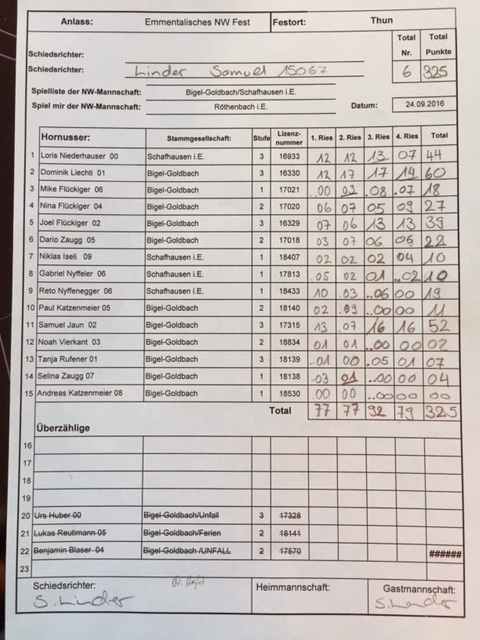 Anlass: Emmentalisches NW Fest Festort: Thun
Total Total
Schiedsrichter: Nr. Punkte
Schiedsrichter: Linder Samuel 15067 6 325
Spielliste der NW-Mannschaft: Bigel-Goldbach/Schafhausen i.E.
Spiel mir der NW-Mannschaft: Röthenbach i.E. Datum: 24.09.2016
Hornusser: Stammgesellschaft: Stufe Lizenz-nummer 1. Ries 2. Ries 3. Ries 4. Ries Total
1 Loris Niederhauser 00 Schafhausen i.E. 3 16933 12 12 13 07 44
2 Dominik Liechti 01 Bigel-Goldbach 3 16330 12 17 17 14 60
3 Mike Flückiger 06 Bigel-Goldbach 1 17021 .00 .08 .07 18
4 Nina Flückiger 04 Bigel-Goldbach 2 17020 06 07 05 09 27
5 Joel Flückiger 02 Bigel-Goldbach 3 16329 07 06 13 13 39
6 Dario Zaugg 05 Bigel-Goldbach 2 17018 03 07 06 06 22
7 Niklas Iseli 09 Schafhausen i.E. 1 18407 02 02 02 04 10
8 Gabriel Nyffeler 06 Schafhausen i.E. 1 17813 .05 02 01 ..02 10
9 Reto Nyffenegger 06 Schafhausen i.E. 1 18433 10 03 ..06 00 19
10 Paul Katzenmeier 05 Bigel-Goldbach 2 18140 02 .09 ..00 00 11
11 Samuel Jaun 02 Bigel-Goldbach 3 17315 13 .07 16 16 52
12 Noah Vierkand 03 Bigel-Goldbach 2 18834 01 01 ..00 00 02
13 Tanja Rufener 01 Bigel-Goldbach 3 18139 .01 00 .05 01 07
14 Selina Zaugg 07 Bigel-Goldbach 1 18138 .03 01 ..00 00 04
15 Andreas Katzenmeier 08 Bigel-Goldbach 1 18530 00 00 ..00 00 00
Total 77 77 92 79 325
Überzählige
16
17
18
19
20 Urs Huber 00 Bigel-Goldbach/Unfall 3 17328
21 Lukas Reutimann 05 Bigel-Goldbach/Ferien 2 18141
22 Benjamin Blaser 04 Bigel-Goldbach /UNFALL 2 17570 ######
23
Schiedsrichter: Heimmannschaft: Gastmannschaft:
S. Linder S. Linder